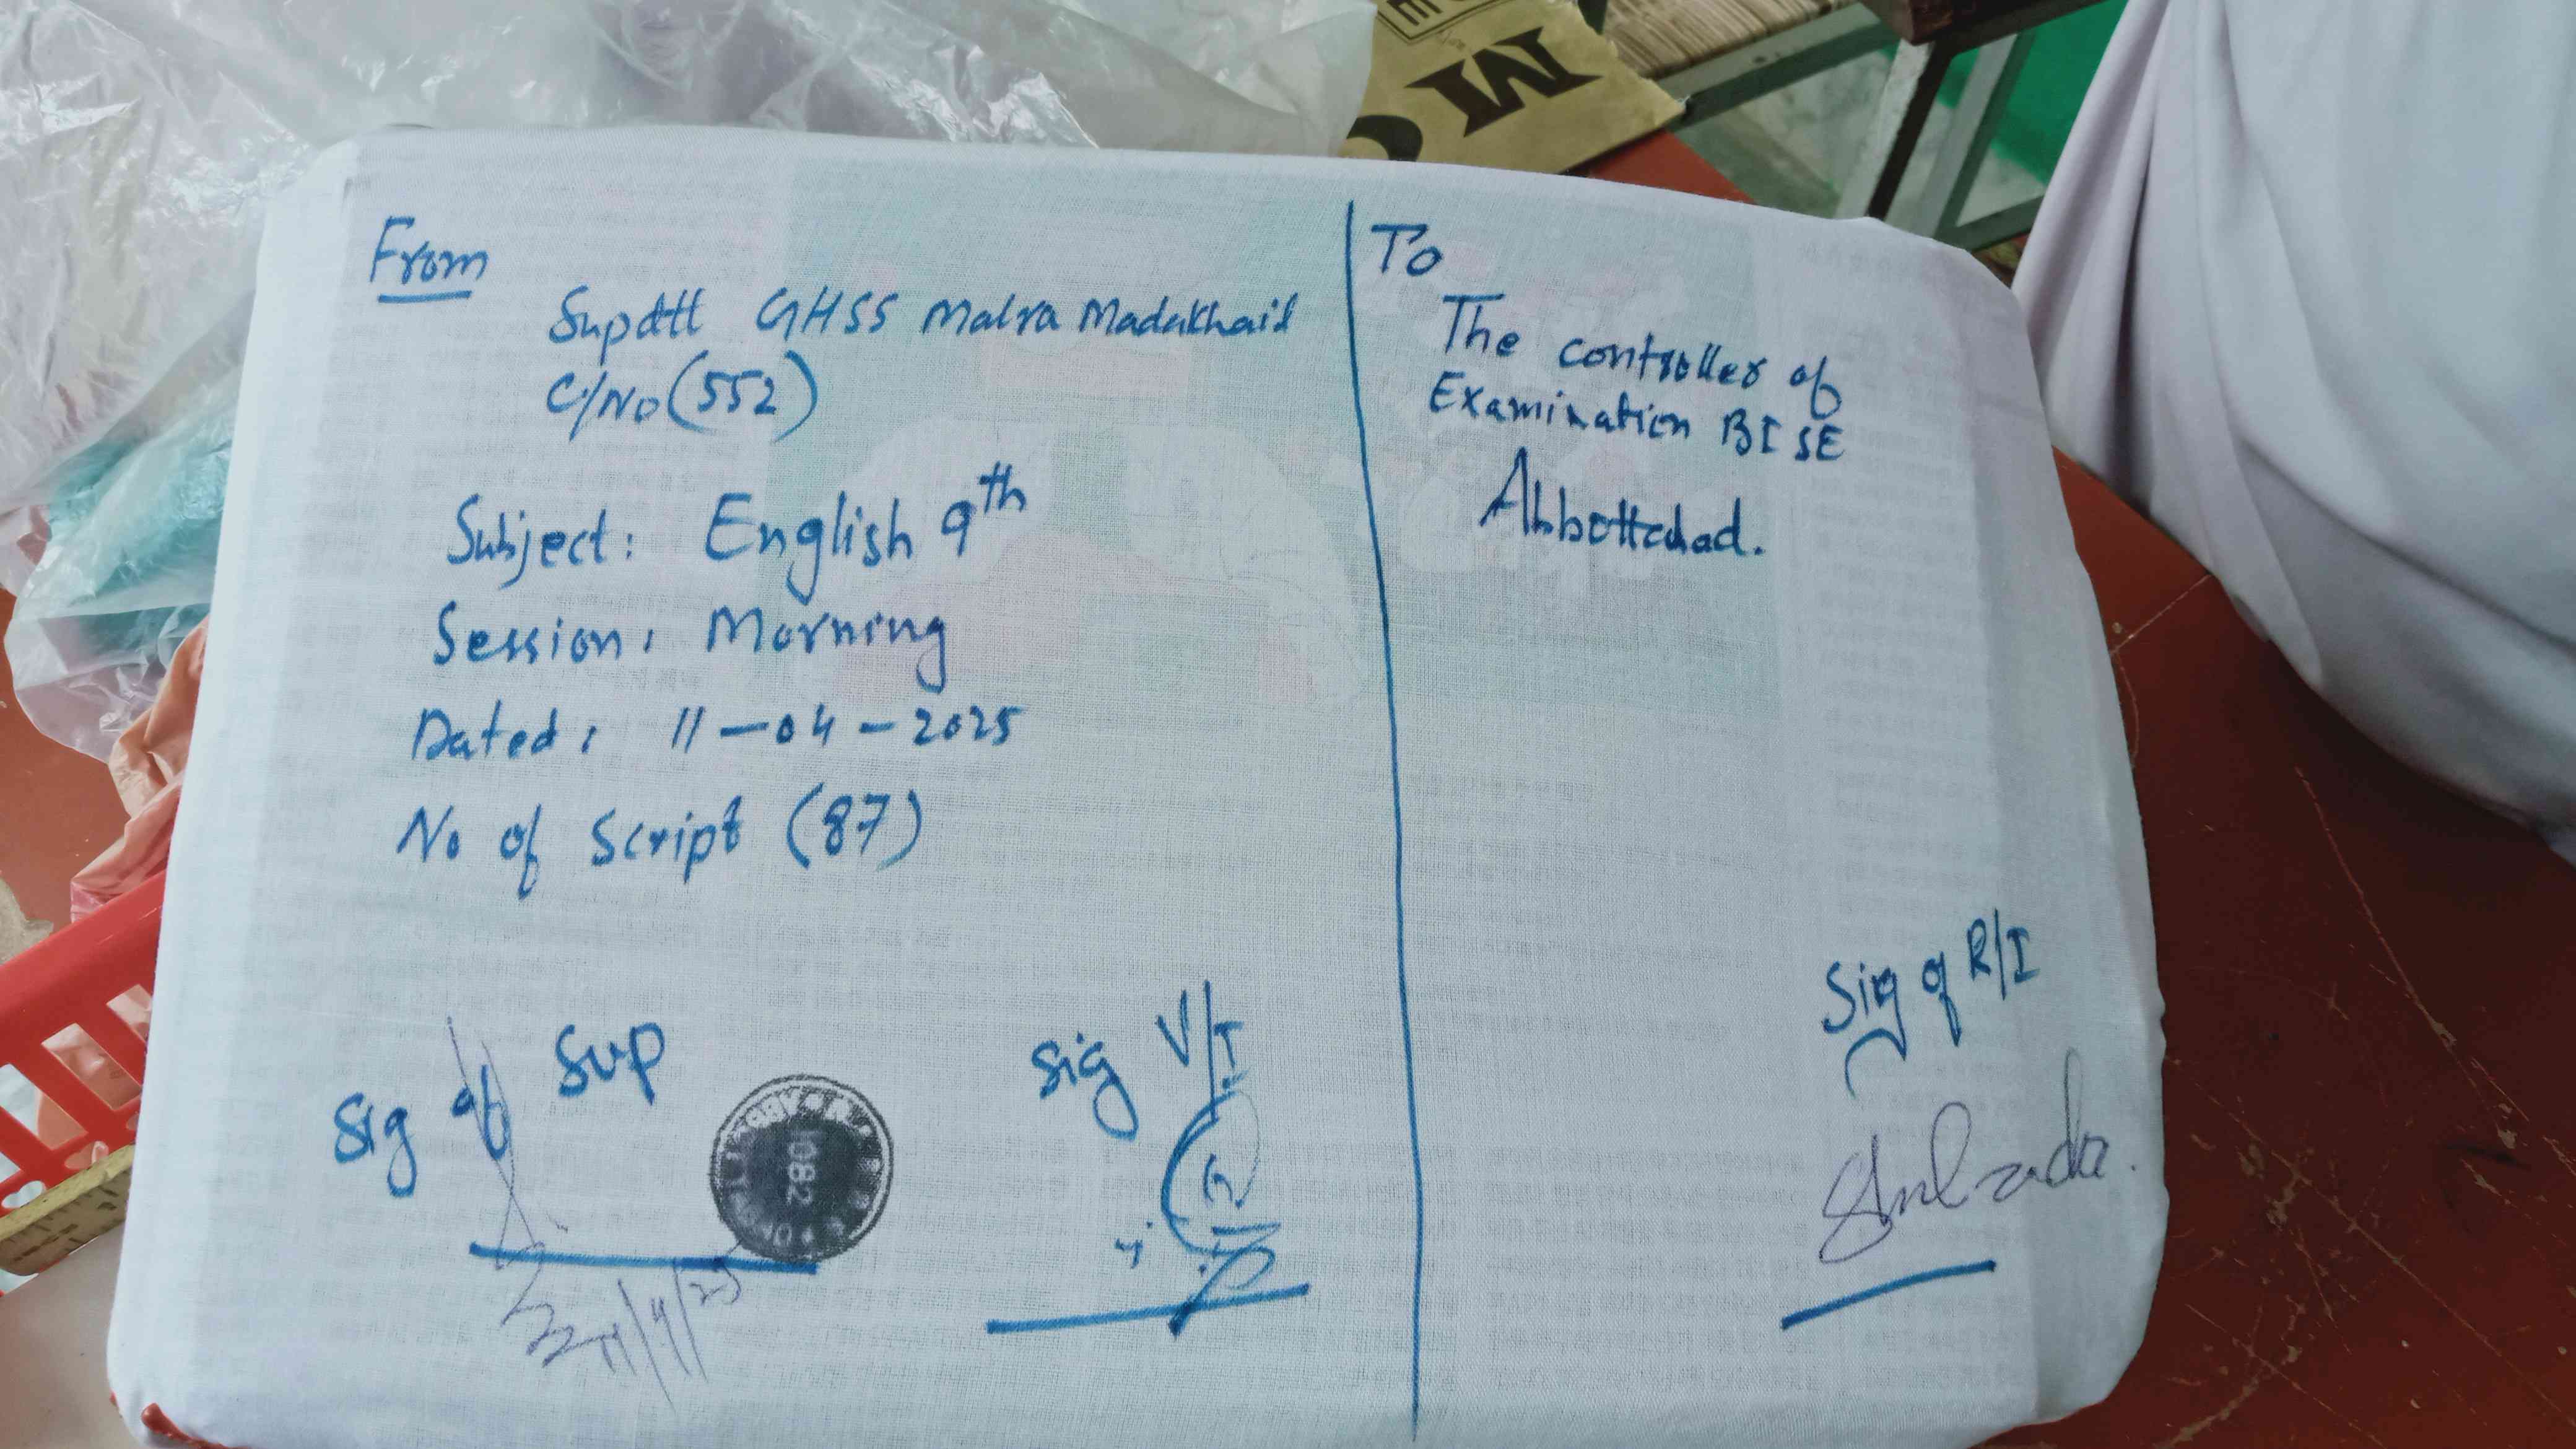 From
Supdtt GHSS Malra Madakhail
C/No (552)
Subject: English 9th
Session: Morning
Dated: 11-04-2025
No of Script (87)
Sig of Sup
Sig V/I
To
The controller of
Examination BISE
Abbottabad.
Sig of R/I
1082